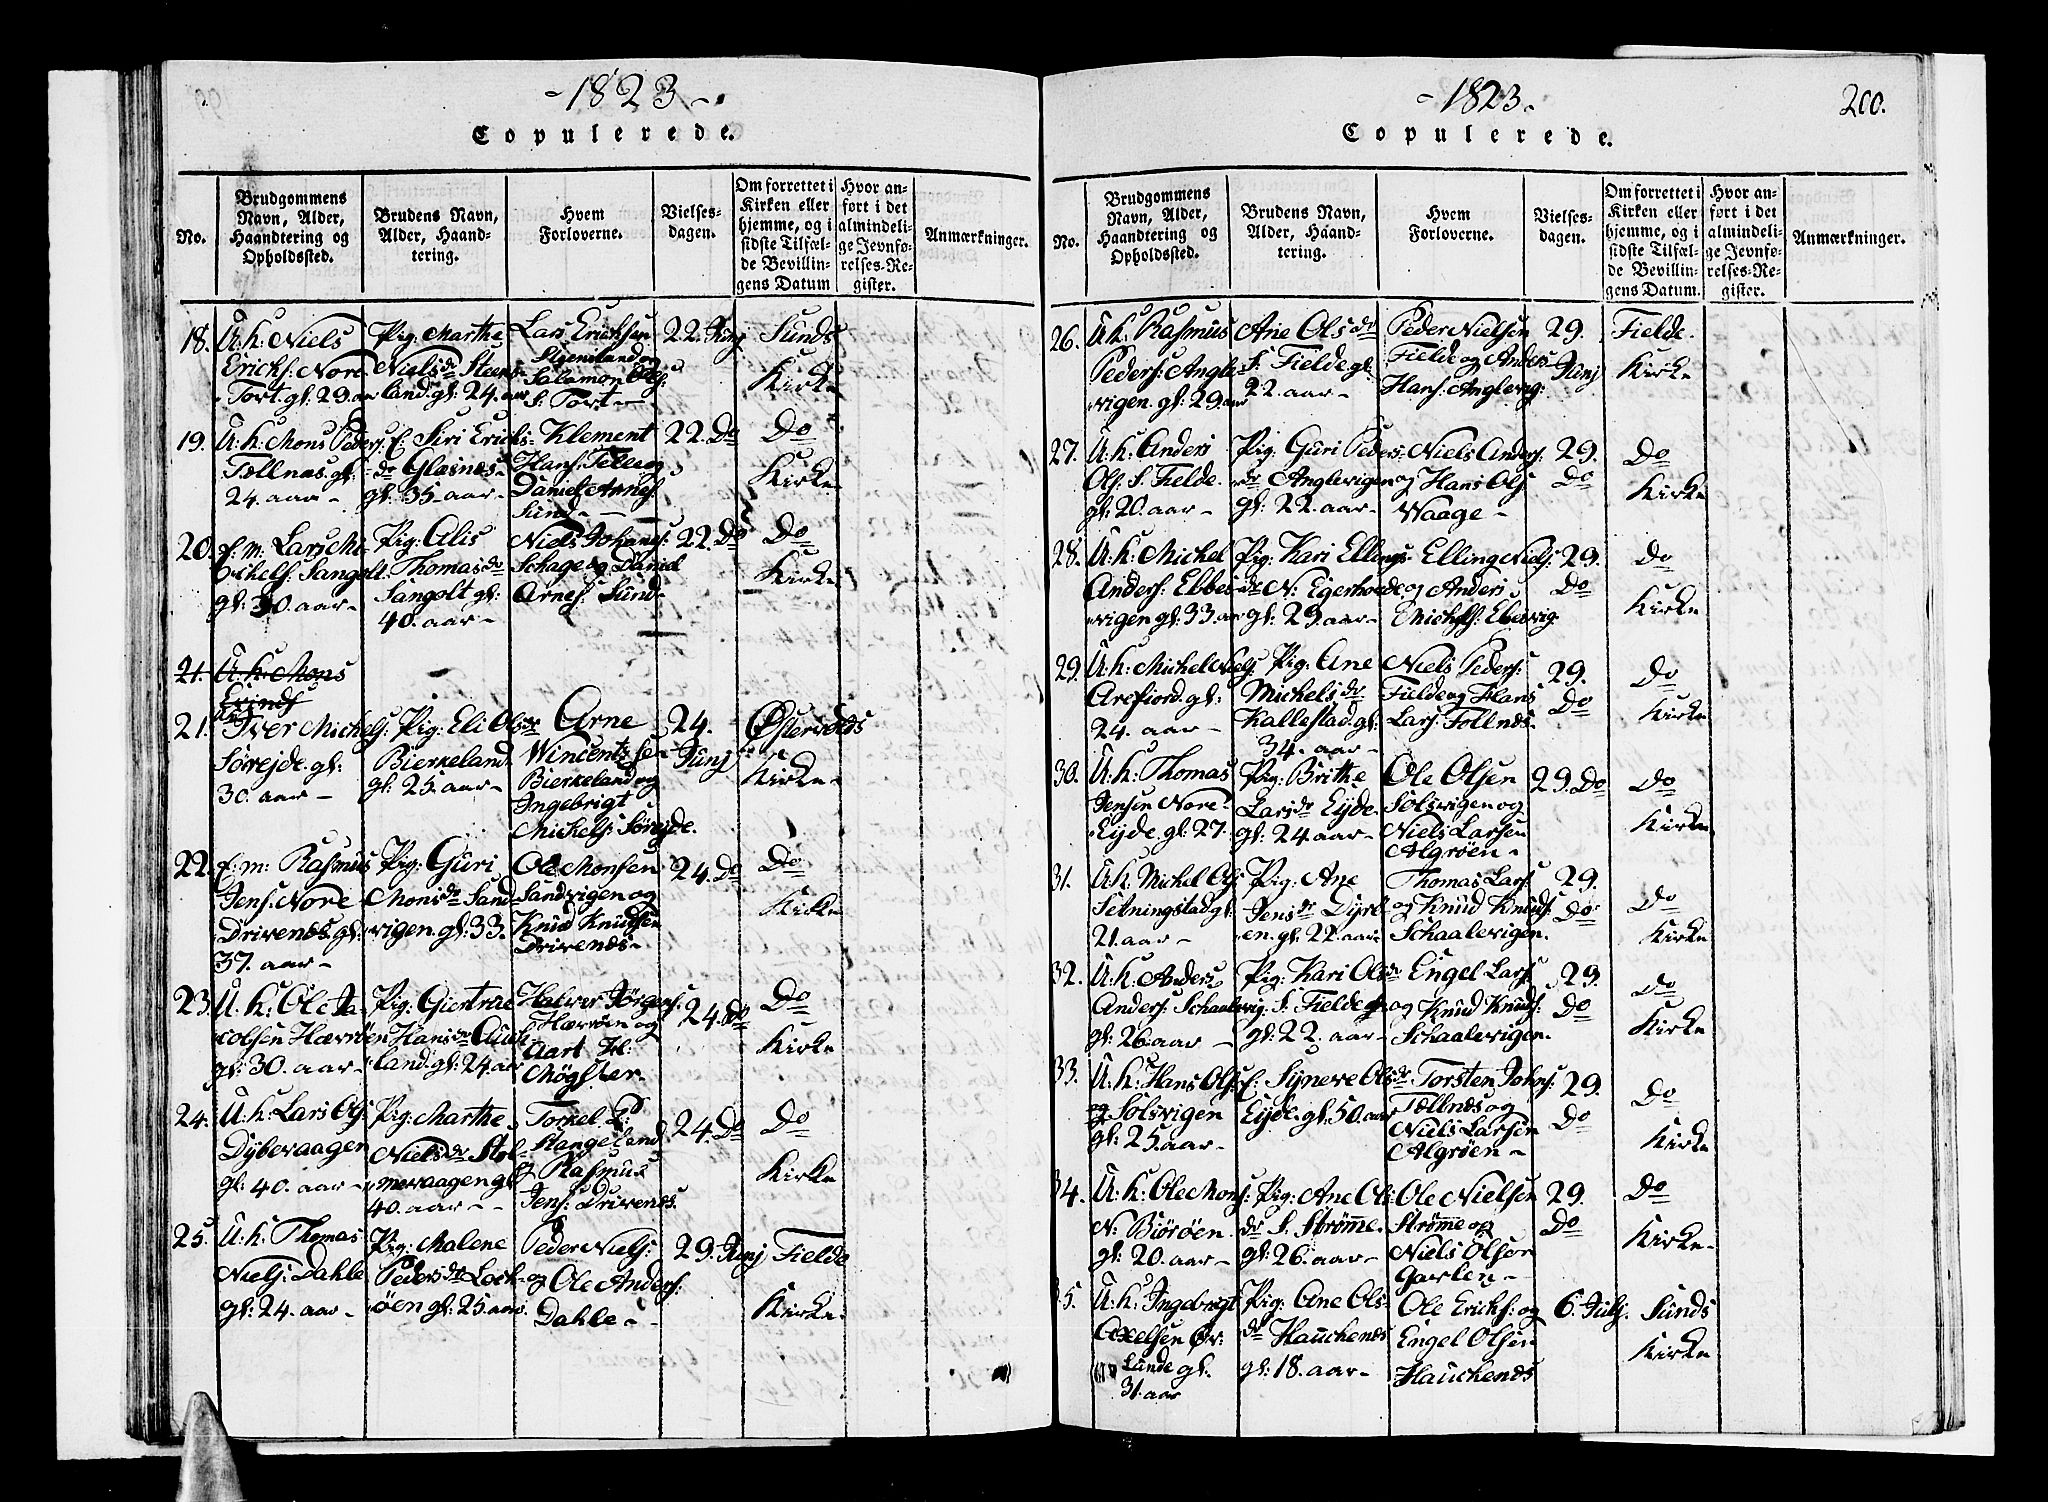 - 1823 -.
Copulerede.
No.
Brudgommens Navn, Alder, Haandtering og Opholdssted.
Brudens Navn, Alder, Haandtering.
Hvem Forloverne.
Vielsesdagen.
Om forrettet i Kirken eller hjemme, og i sidste Tilfælde Bevillingens Datum
Hvor anført i det almindelige Jevnførelses-Register.
Anmærkninger.
18. U:k: Niels Ericks: Nore Tort. gl: 29 aar
Pig: Marthe Niels dr Steensland. gl: 24. aar
Lars Ericksen Steensland og Salamon Ols: S: Tort -
22. Junj
Sunds Kirke
19. U:k: Mons Peders: Tællnæs. gl: 24. aar -
E: Siri Ericks- dr Glæsnæs gl: 35 aar -
Klement Hans: Telle og Daniel Arnes: Sund -
22. Do
Do Kirke
20. E:m: Lars Mickels: Sangolt. gl: 30. aar -
Pig: Alis Thomas dr Sangolt gl: 40. aar -
Niels Johanes: Schage og Daniel Arnes: Sund -
22. Do
Do Kirke
21. U:k: Mons Erinds
21. Iver Michels: Sørejde. gl: 30. aar -
Pig: Eli Ols dr Bierkeland. gl: 25. aar -
Arne Wincentzsen Bierkeland og Ingebrigt Michels: Sørejde.
24. Junj
Østervolds Kirke
22. E:m: Rasmus Jens: Nore Drivenæs. gl: 37. aar -
Pig: Guri Mons dr Sandvigen. gl: 33.
Ole Monsen Sandvigen og Knud Knudsen Drivenæs -
24. Do
Do Kirke
23. U:k: Ole Jacolsen Hævrøen gl: 30. aar -
Pig: Giertrue Hans dr Auckland. gl: 24. aar
Halver Jørgens: Hævrøen og Aart H: Møgster.
24. Do
Do Kirke
24. U:k: Lars Ols: Dybevaagen gl: 40. aar -
Pig: Marthe Niels dr Stolmevaagen gl 40. aar -
Torkel P: Stangeland og Rasmus Jens: Drivenæs.
24. Do
Do Kirke
25. U:k: Thomas Niels: Dahle gl: 24. aar -
Pig: Malene Peders dr Lockøen gl: 25. aar
Peder Niels: og Ole Anders: Dahle -
29. Junj
Fielde Kirke
- 1823 -
200.
Copulerede.
No.
Brudgommens Navn, Alder, Haandtering og Opholdssted.
Brudens Navn, Alder, Haandtering.
Hvem Forloverne.
Vielsesdagen.
Om forrettet i Kirken eller hjemme, og i sidste Tilfælde Bevillingens Datum.
Hvor anført i det almindelige Jevnførelses-Register.
Anmærkninger.
26. U:k: Rasmus Peders: Anglevigen. gl: 29. aar
Ane Ols dr S: Fielde gl: 22. aar -
Peder Nielsen Fielde og Anders Hans: Anglevig:
29. Junj
Fielde Kirke
27. U:k: Anders Ols: S: Fielde. gl: 20. aar -
Pig: Guri Peders- dr Anglevigen gl: 22. aar -
Niels Anders: og Hans Ols: Waage -
29. Do
Do Kirke
28. U:k: Michel Anders: Ebbesvigen gl: 33. aar
Pig: Kari Ellings dr N: Egerhovde gl: 29. aar -
Elling Niels: og Anders Michels: Ebesvig
29. Do
Do Kirke
29. U:k: Michel Niels: Arefiord. gl: 24. aar
Pig: Ane Michels dr Kallestad. gl: 34. aar -
Niels Peders: Fielde og Hans Lars: Tollnæs.
29. Do
Do Kirke
30. U:k: Thomas Jensen Nore Eijde. gl: 27.
Pig: Brithe Lars dr Eijde. gl: 24 aar -
Ole Olsen Solsvigen og Niels Larsen Algrøen -
29. Do
Do Kirke
31. U:k: Michel Ols: Setningstad gl: 21. aar -
Pig: Ane Jens dr Dyreen. gl: 22. aar
Thomas Lars: og Knud Knuds: Schaalevigen.
29. Do
Do Kirke
32. U:k: Anders Anders: Schaalevig. gl: 26. aar
Pig: Kari Ols dr S: Fielde gl: 22. aar -
Engel Lars: og Knud Knuds: Schaalevigen.
29. Do
Do Kirke
33. U:k: Hans Ols: Solsvigen gl: 25. aar -
E: Syneve Ols dr Eijde. gl: 50. aar
Torsten Johns: Tællnæs og Niels Larsen Algrøen -
29. Do
Do Kirke
34. U:k: Ole Mons: N: Biorøen. gl: 20. aar -
Pig: Ane Ols dr S: Strømme. gl: 26. aar -
Ole Nielsen Strømme og Niels Olsen Garlen -
29. Do
Do Kirke -
35. U:k: Ingebrigt Axelsen Ørlunde gl. 31. aar
Pig: Ane Ols- dr Hauckenæs gl: 18. aar -
Ole Ericks: og Engel Olsen Hauckenæs
6. Julj.
Sunds Kirke